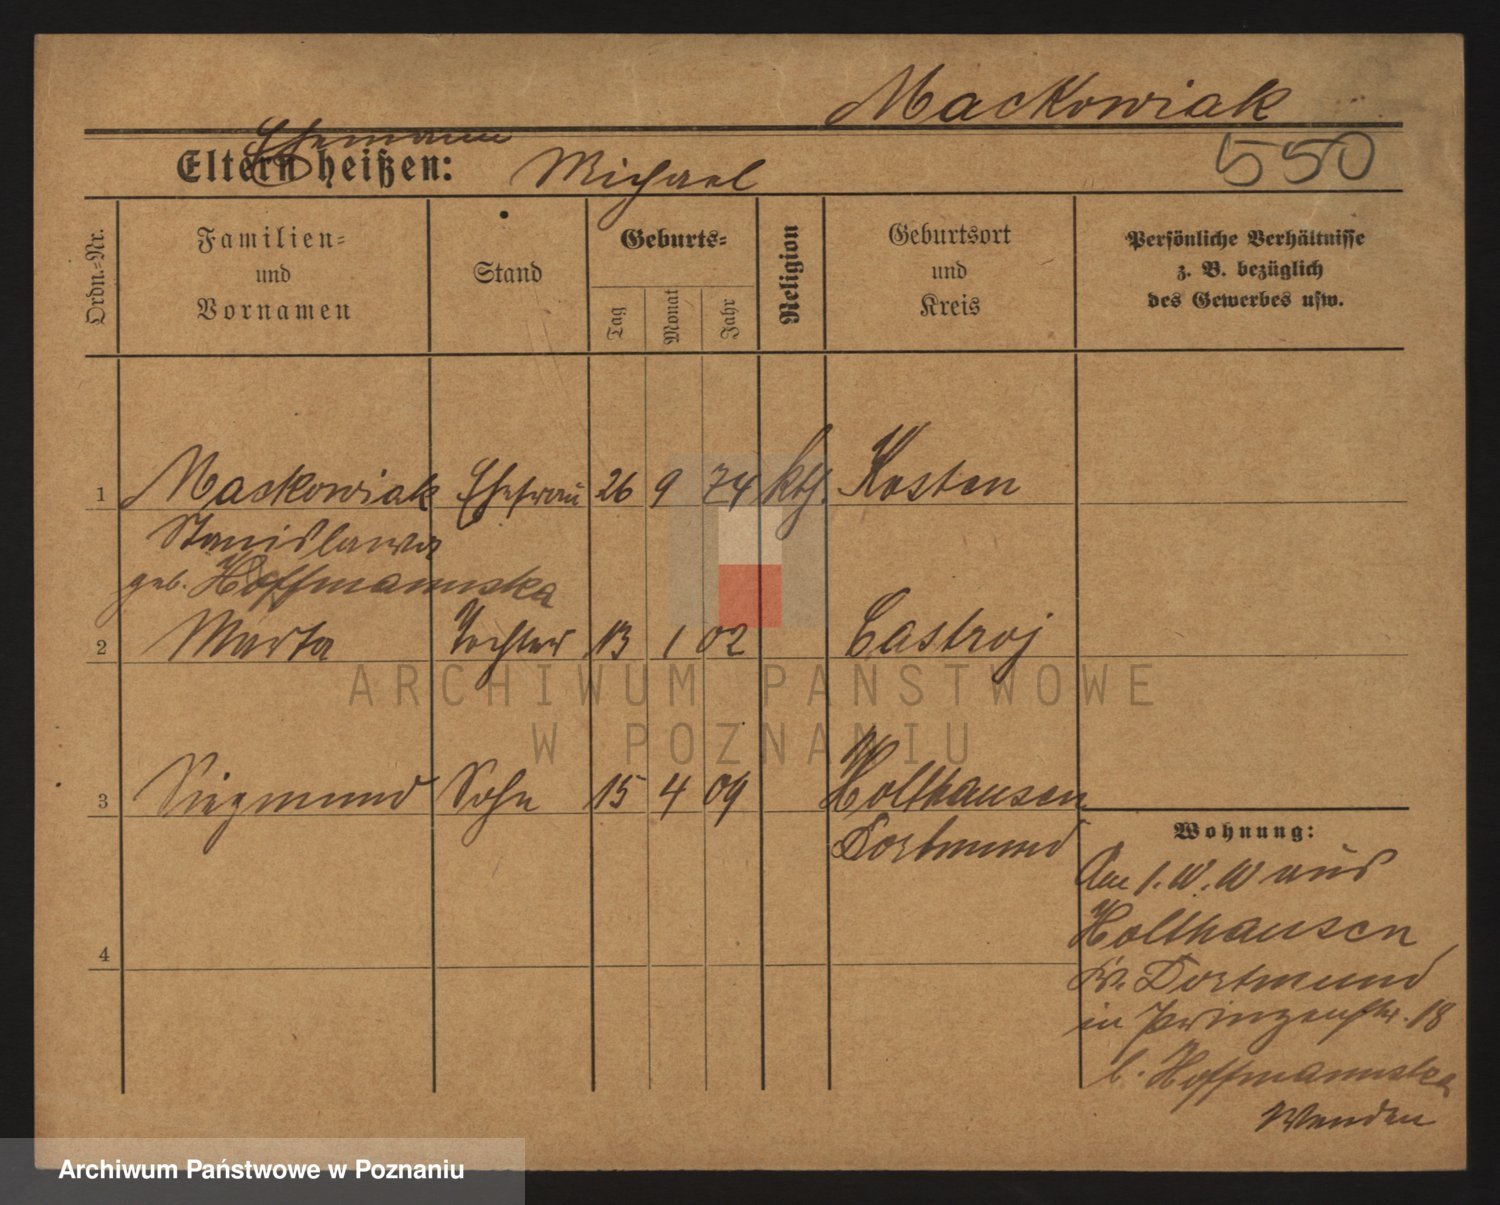 Mackowiak
Ehemann
Eltern heißen: Michael 550
Ordn.-Nr.
Familien-
und
Vornamen
Stand
Geburts-
Tag
Monat
Jahr
Religion
Geburtsort
und
Kreis
Persönliche Verhältnisse
z. B. bezüglich
des Gewerbes usw.
1 Mackowiak Ehefrau 26 9 74 kth. Kosten
Stanislawa
geb. Hoffmannska
2 Marta Tochter 13 1 02 Castroj
3 Siegmund Sohn 15 4 09 Holthausen
Dortmund
4
Wohnung:
Am 1. aus
Holthausen
Kr. Dortmund
in Prinzenstr. 18
b. Hoffmannska
Wenden
ARCHIWUM PAŃSTWOWE
W POZNANIU
Archiwum Państwowe w Poznaniu